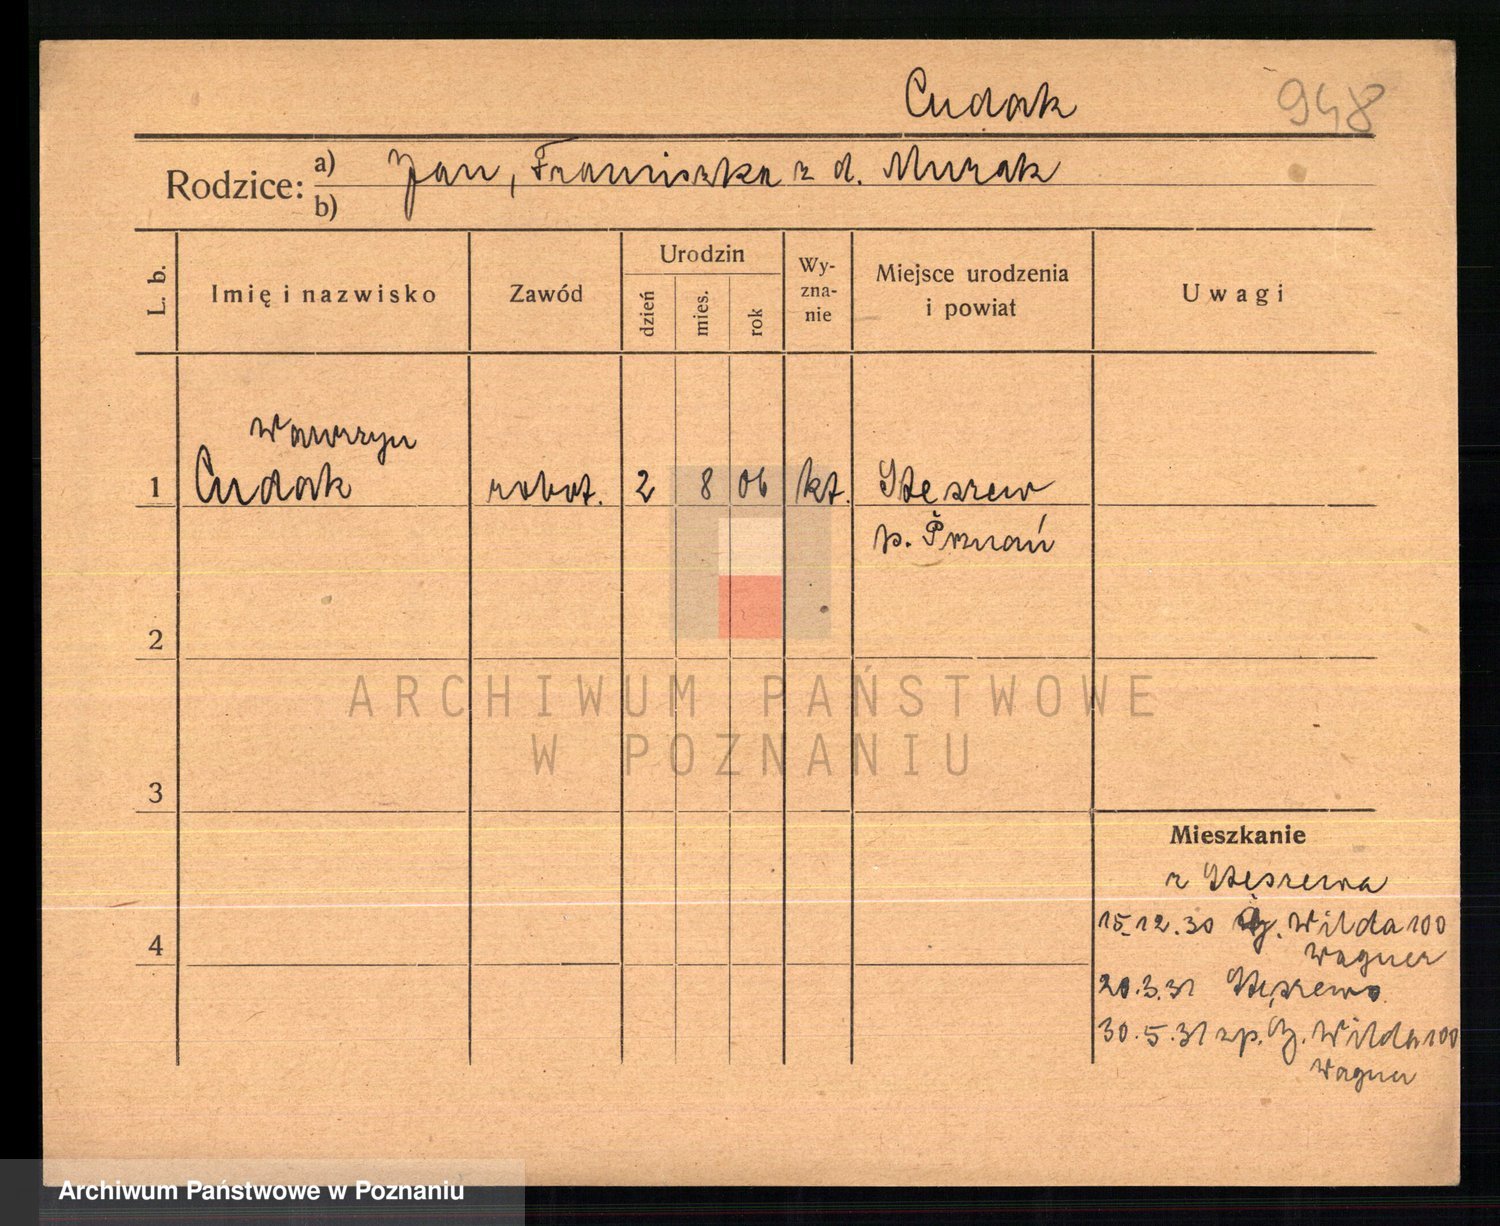 Cudak 948
Rodzice: a) Jan, Franciszka z d. Murak
b)
L. b. Imię i nazwisko Zawód Urodzin dzień mies. rok Wy-zna-nie Miejsce urodzenia i powiat Uwagi
Wawrzyn
1 Cudak robot. 2 8 06 kt. Stęszew
p. Poznań
2
ARCHIWUM PAŃSTWOWE
W POZNANIU
3
Mieszkanie
z Stęszewa
15.12.30 G. Wilda 100
4 Wagner
20.3.31 Stęszewo
30.5.31 zp. G. Wilda 100
Wagner
Archiwum Państwowe w Poznaniu